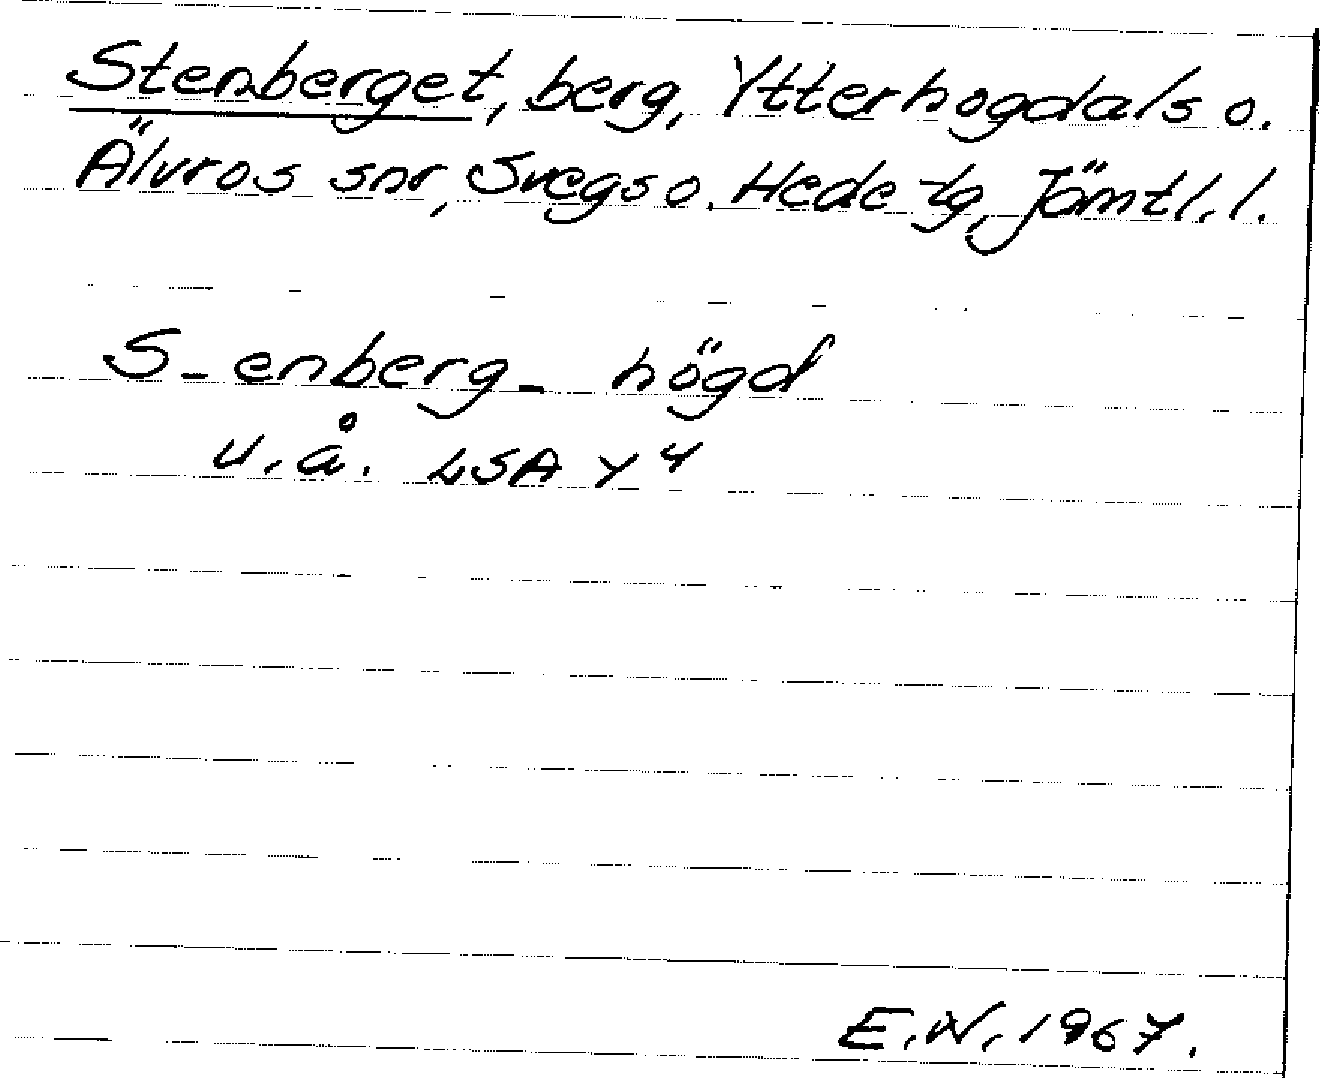 Stenberget, berg, Ytterhogdals o.
Älvros snr, Svegs o. Hede tg, Jämtl. l.
S_enberg_ högd
u. å. LSA Y 4
E.W. 1967.